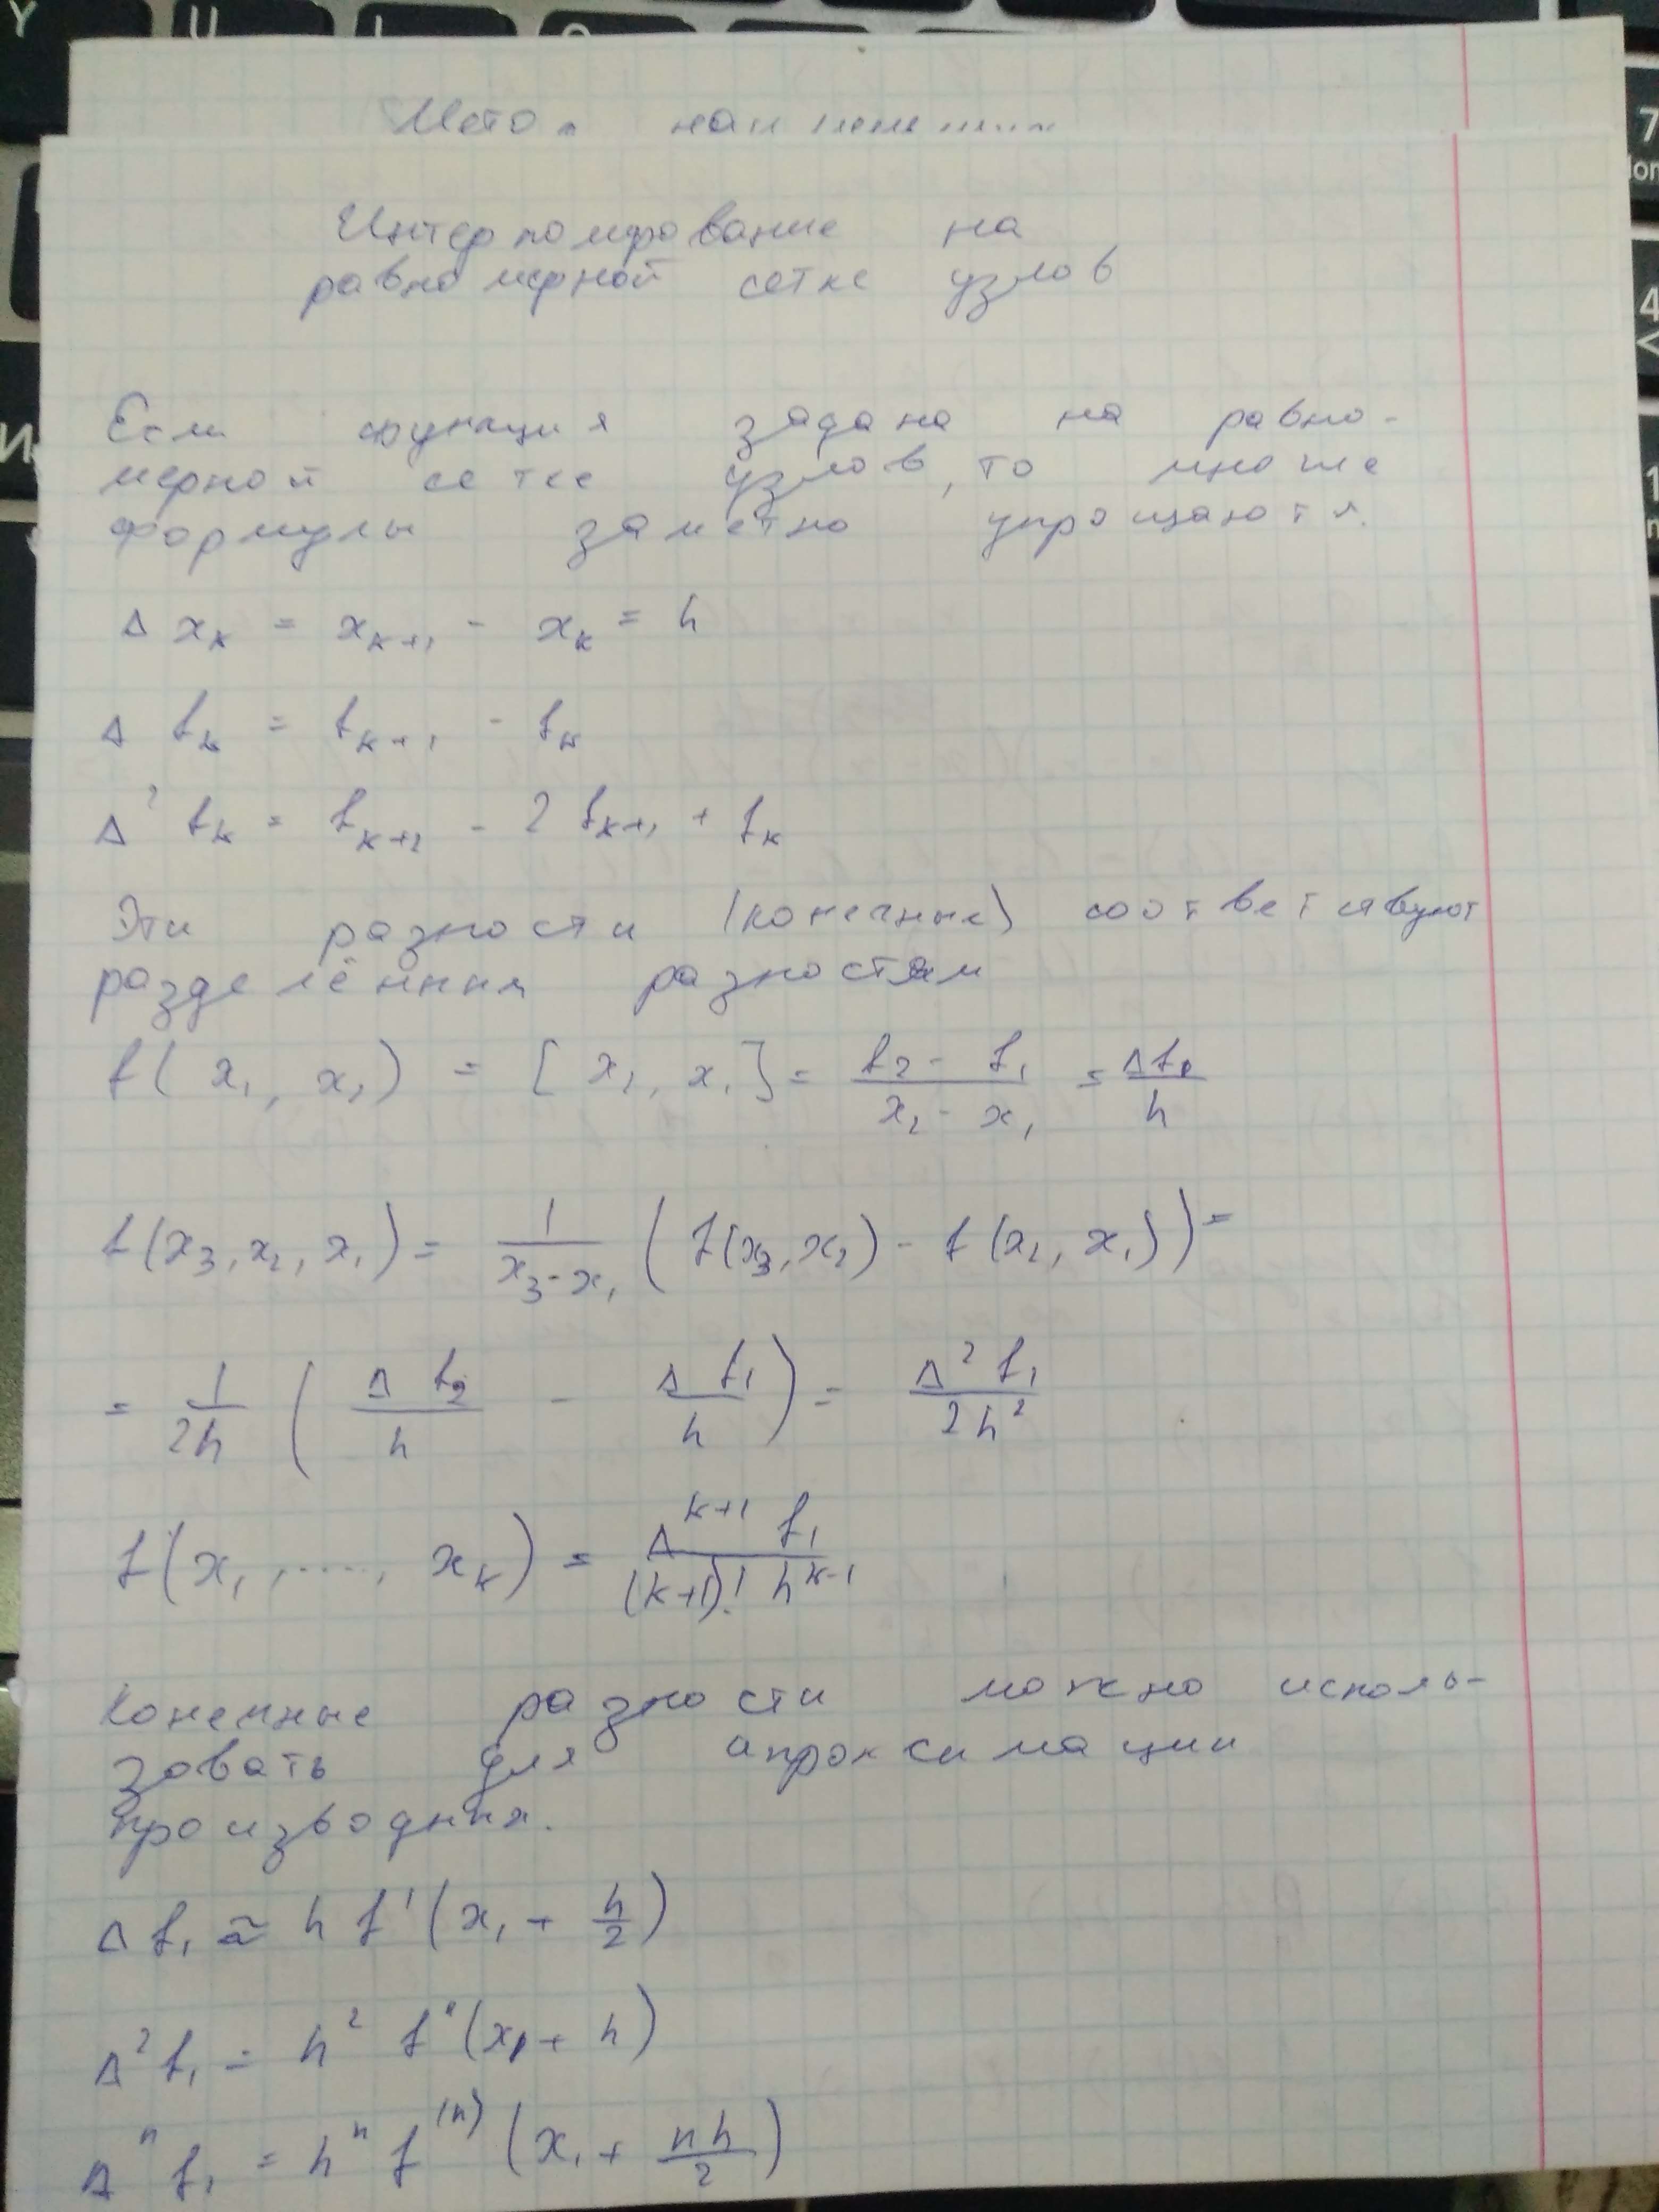 Метод
Интерполирование на
равномерной сетке узлов
Если функция задана на равно-
мерной сетке узлов, то многие
формулы заметно упрощаются.
Δ x_k = x_{k+1} - x_k = h
Δ f_k = f_{k+1} - f_k
Δ² f_k = f_{k+2} - 2 f_{k+1} + f_k
Эти разности (конечные) соответствуют
разделённым разностям
f(x_1, x_2) = [x_2, x_1] = (f_2 - f_1)/(x_2 - x_1) = Δf_1/h
f(x_3, x_2, x_1) = 1/(x_3 - x_1) (f(x_3, x_2) - f(x_2, x_1)) =
= 1/(2h) (Δ f_2/h - Δ f_1/h) = Δ² f_1/(2h²)
f(x_1, ...., x_k) = Δ^{k+1} f_1/((k+1)! h^{k-1})
Конечные разности можно исполь-
зовать для апроксимации
производных.
Δ f_1 ≈ h f'(x_1 + h/2)
Δ² f_1 = h² f''(x_1 + h)
Δ^n f_1 = h^n f^{(n)} (x_1 + nh/2)
Y
U
7
4
<
1